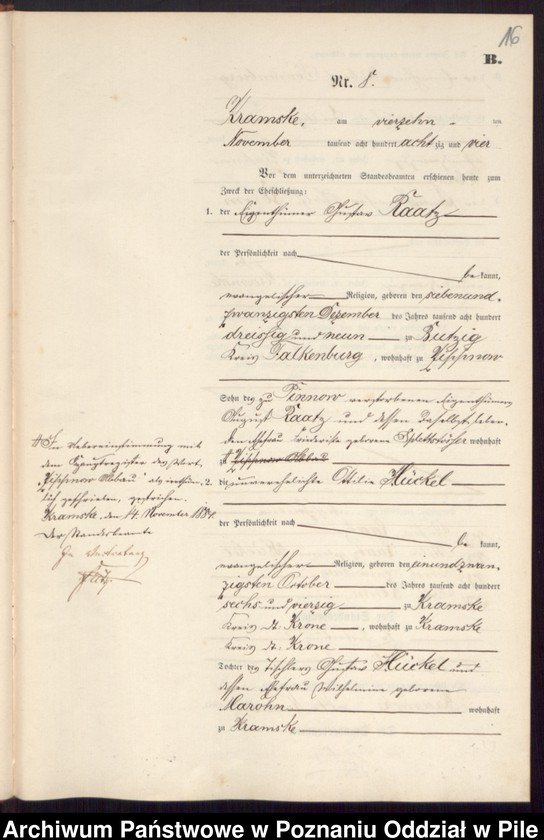 16
B.
Nr. 8.
Kramske, am vierzehn ten
November tausend acht hundert achtzig und vier
Vor dem unterzeichneten Standesbeamten erschienen heute zum
Zweck der Eheschließung:
1. der Eigenthümer Gustav Raatz
der Persönlichkeit nach
be kannt,
evangelischer Religion, geboren den siebenund-
zwanzigsten Dezember des Jahres tausend acht hundert
dreissig und neun zu Butzig
Kreis Falkenburg, wohnhaft zu
Sohn des zu Pinnow verstorbenen Eigenthümers
August Raatz und dessen daselbst
Ehefrau Friederike geborene wohnhaft
zu
2. die unverehelichte Ottilie Hückel
der Persönlichkeit nach
be kannt,
evangelischer Religion, geboren den einundzwan-
zigsten October des Jahres tausend acht hundert
sechs und vierzig zu Kramske
Kreis Dt. Krone, wohnhaft zu Kramske
Kreis Dt. Krone
Tochter des Tischlers Gustav Hückel und
dessen Ehefrau Wilhelmine geborene
Marohn wohnhaft
zu Kramske
In Uebereinstimmung mit
dem Hauptregister das Wort
gestrichen.
Kramske, den 14. November 1884.
Der Standesbeamte
In Vertretung
Archiwum Państwowe w Poznaniu Oddział w Pile